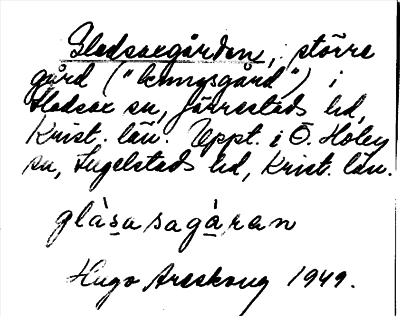 Gladsaxgården, större
gård ("kungsgård") i
Gladsax sn, Järrestads hd,
Krist. län. Uppt. i Ö. Hoby
sn, Ingelstads hd, Krist. län.
glàsasagàran
Hugo Areskoug 1949.